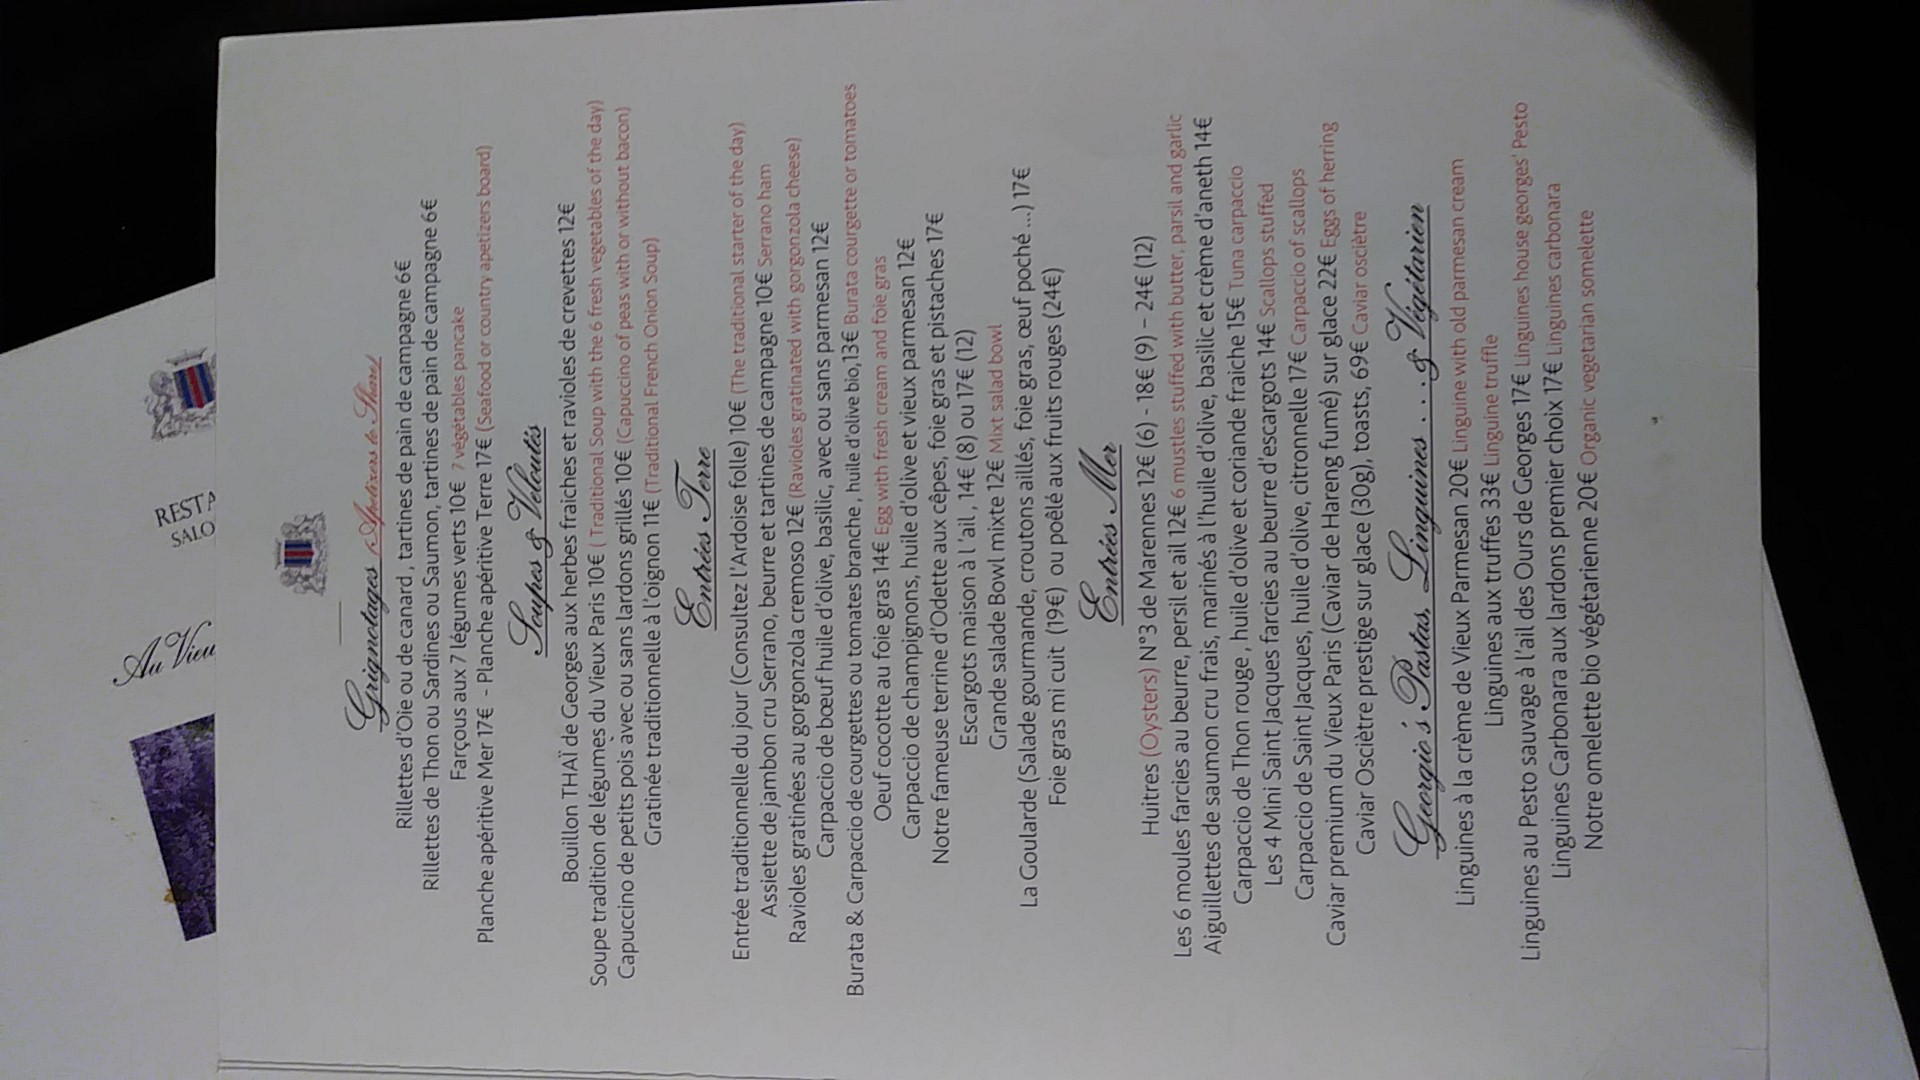 Au Vieu
RESTA
SALO
Grignotages (Aptizers to Share)
Rillettes d'Oie ou de canard , tartines de pain de campagne 6€
Rillettes de Thon ou Sardines ou Saumon, tartines de pain de campagne 6€
Farçous aux 7 légumes verts 10€ 7 végétables pancake
Planche apéritive Mer 17€ - Planche apéritive Terre 17€ (Seafood or country apetizers board)
Soupes & Veloutés
Bouillon THAÏ de Georges aux herbes fraiches et ravioles de crevettes 12€
Soupe tradition de légumes du Vieux Paris 10€ ( Traditional Soup with the 6 fresh vegetables of the day)
Capuccino de petits pois avec ou sans lardons grillés 10€ (Capuccino of peas with or without bacon)
Gratinée traditionnelle à l'oignon 11€ (Traditional French Onion Soup)
Entrées Terre
Entrée traditionnelle du jour (Consultez l'Ardoise folle) 10€ (The traditional starter of the day)
Assiette de jambon cru Serrano, beurre et tartines de campagne 10€ Serrano ham
Ravioles gratinées au gorgonzola cremoso 12€ (Ravioles gratinated with gorgonzola cheese)
Carpaccio de bœuf huile d'olive, basilic, avec ou sans parmesan 12€
Burata & Carpaccio de courgettes ou tomates branche , huile d'olive bio,13€ Burata courgette or tomatoes
Oeuf cocotte au foie gras 14€ Egg with fresh cream and foie gras
Carpaccio de champignons, huile d'olive et vieux parmesan 12€
Notre fameuse terrine d'Odette aux cêpes, foie gras et pistaches 17€
Escargots maison à l 'ail , 14€ (8) ou 17€ (12)
Grande salade Bowl mixte 12€ Mixt salad bowl
La Goularde (Salade gourmande, croutons aillés, foie gras, œuf poché ...) 17€
Foie gras mi cuit (19€) ou poêlé aux fruits rouges (24€)
Entrées Mer
Huitres (Oysters) N°3 de Marennes 12€ (6) - 18€ (9) – 24€ (12)
Les 6 moules farcies au beurre, persil et ail 12€ 6 mustles stuffed with butter, parsil and garlic
Aiguillettes de saumon cru frais, marinés à l'huile d'olive, basilic et crème d'aneth 14€
Carpaccio de Thon rouge , huile d'olive et coriande fraiche 15€ Tuna carpaccio
Les 4 Mini Saint Jacques farcies au beurre d'escargots 14€ Scallops stuffed
Carpaccio de Saint Jacques, huile d'olive, citronnelle 17€ Carpaccio of scallops
Caviar premium du Vieux Paris (Caviar de Hareng fumé) sur glace 22€ Eggs of herring
Caviar Osciètre prestige sur glace (30g), toasts, 69€ Caviar osciètre
Georgio's Pastas, Linguines . . . & Végétarien
Linguines à la crème de Vieux Parmesan 20€ Linguine with old parmesan cream
Linguines aux truffes 33€ Linguine truffle
Linguines au Pesto sauvage à l'ail des Ours de Georges 17€ Linguines house georges' Pesto
Linguines Carbonara aux lardons premier choix 17€ Linguines carbonara
Notre omelette bio végétarienne 20€ Organic vegetarian somelette